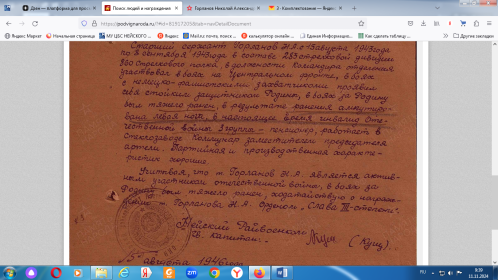 Поиск людей и награждения
3 - Компоновление
https://podvignaroda.ru/?#id=81517205&tab=navDetailDocument
Яндекс Маркет
Начальная страница
МЦ ЦБС НЕЙСКОГО ...
Яндекс
Mail.ru почта, поиск в...
карты
Единая Информации...
Как сделать таблицу ...
Другие закладки
Старший сержант Горланов Н.А. с 13 августа 1943 года
по 8 сентября 1943 года в составе стрелковой дивизии
980 стрелкового полка в должности Командира отделения
участвовал в боях на Центральном фронте, в боях
с немецко-фашистскими захватчиками проявил
себя стойким защитником Родины, в боях за Родину
был тяжело ранен, в результате ранения ампутиро-
вана левая нога, в настоящее время инвалид Оте-
чественной войны 3 группы - пенсионер, работает в
Стеклозаводе Коммунар заместителем председателя
артели. Партийная и производственная характе-
ристик хорошие.
Учитывая, что т. Горланов Н.А. является актив-
ным участником отечественной войны, в боях за
Родину был тяжело ранен, ходатайствую о награж-
дении т. Горланова Н.А. Орденом "Слава III-степени".
Нейский Райвоенком
Гв. капитан.
августа 1946 года
RU
8:39
11.11.2024